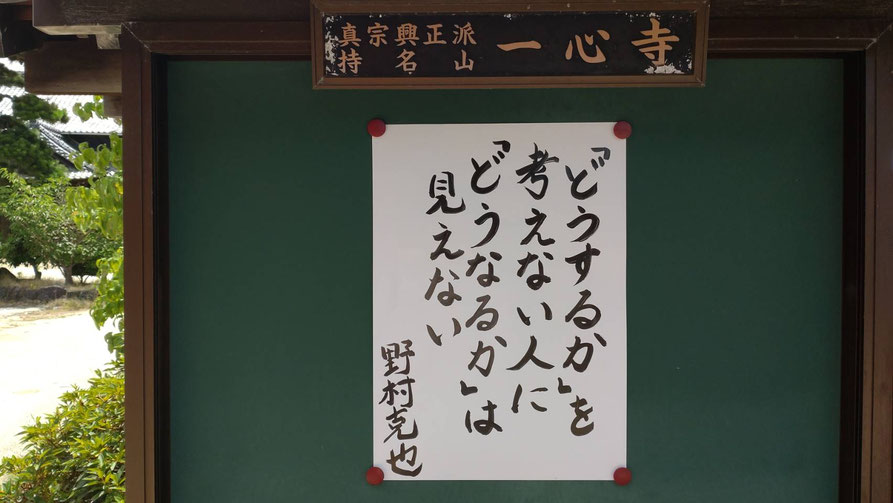 真宗興正派
持名山
一心寺
『どうするか』を
考えない人に
『どうなるか』は
見えない
野村克也